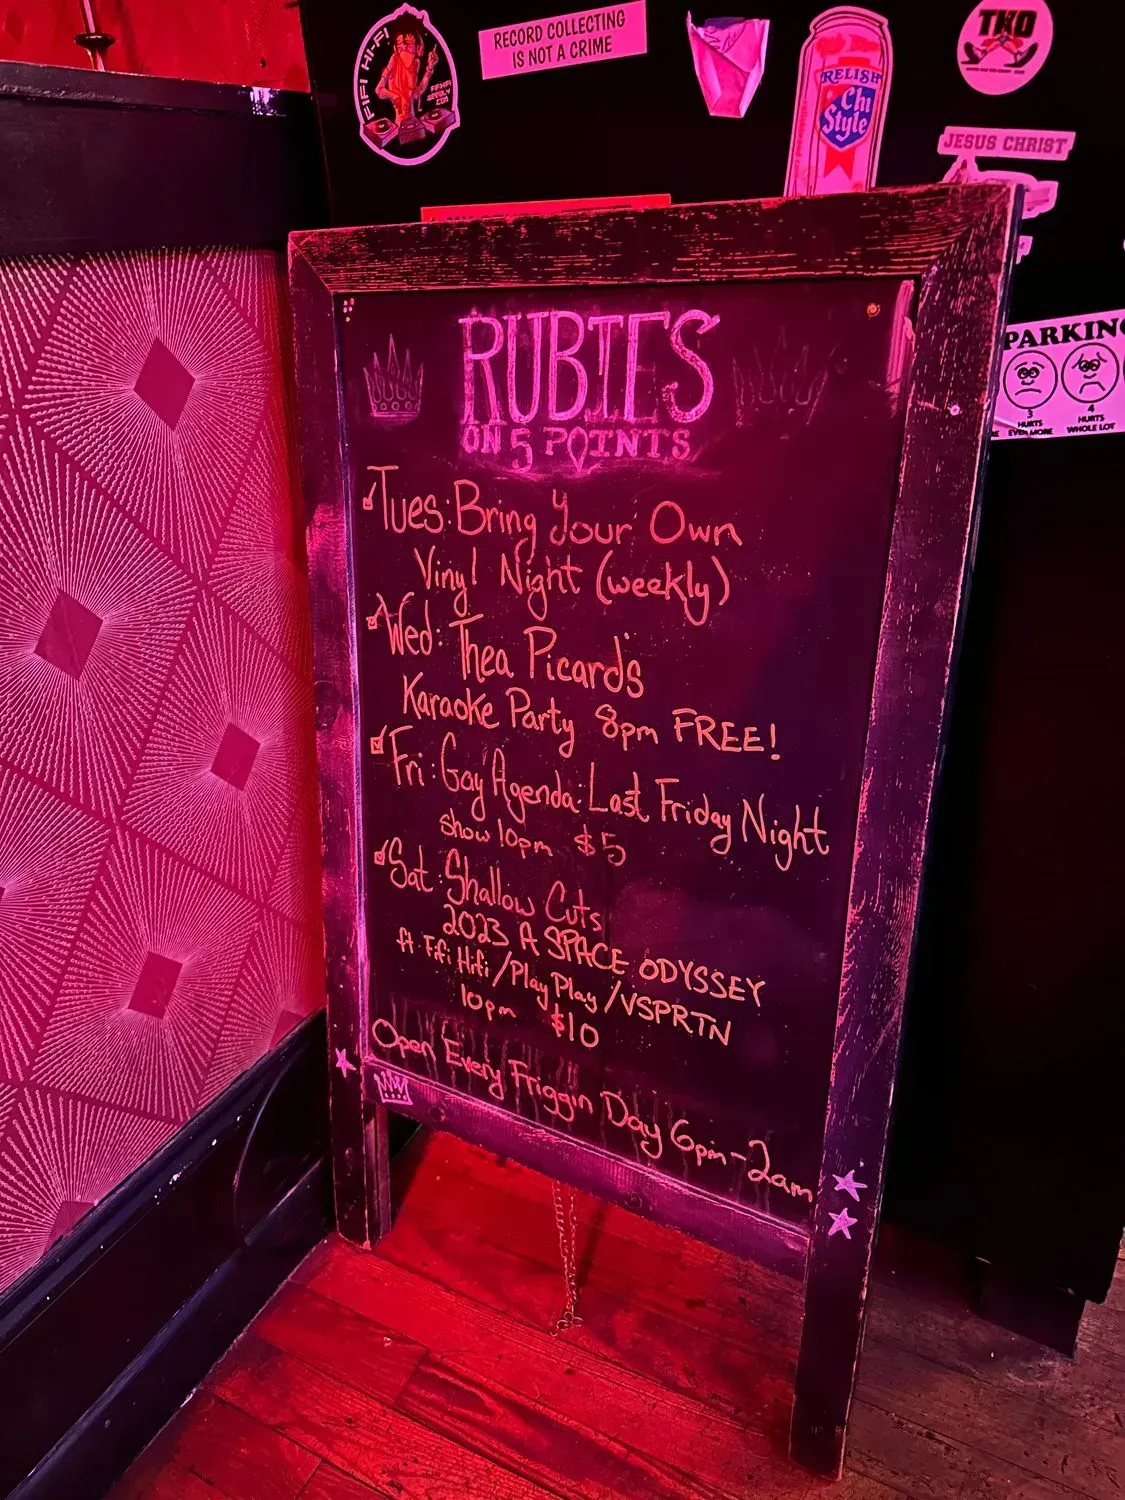 FIFI HI-FI
RECORD COLLECTING
IS NOT A CRIME
RELISH
Chi
Style
TKO
JESUS CHRIST
PARKING
3
HURTS
EVEN MORE
4
HURTS
WHOLE LOT
RUBIES
ON 5 POINTS
Tues: Bring Your Own
Vinyl Night (weekly)
Wed: Thea Picards
Karaoke Party 8pm FREE!
Fri: Gay Agenda: Last Friday Night
Show 10pm $5
Sat: Shallow Cuts
2023 A SPACE ODYSSEY
ft Fifi Hifi / Play Play / VSPRTN
10pm $10
Open Every Friggin Day 6pm-2am